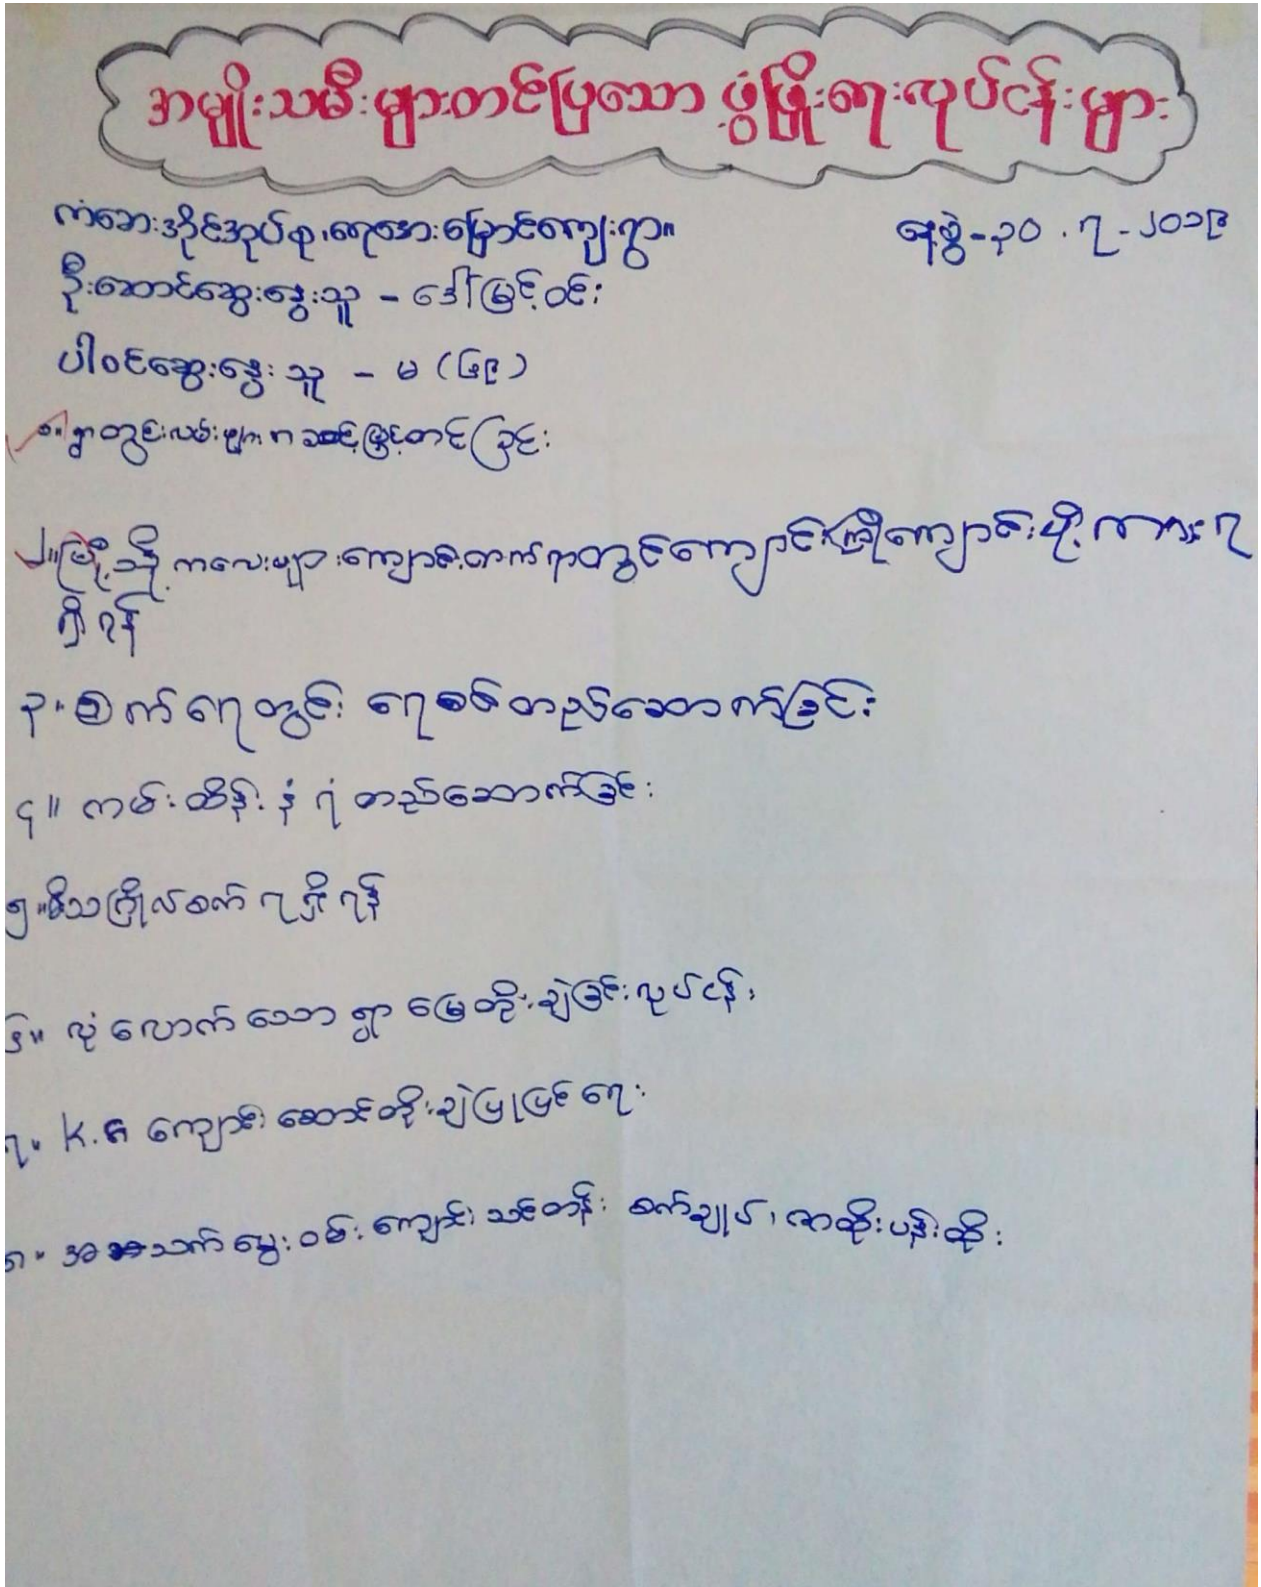 အမျိုးသမီးများတင်ပြသော ဖွံ့ဖြိုးရေးလုပ်ငန်းများ
ကံဆေးအိုင်အုပ်စု၊ရေအေးမြောင်ကျေးရွာ။ နေ့စွဲ-၃၀.၇-၂၀၁၉
ဦးဆောင်ဆွေးနွေးသူ - ဒေါ်မြင့်ဝင်း
ပါဝင်ဆွေးနွေးသူ - မ (၆၉)
၁။ ရွာတွင်းလမ်းများ အဆင့်မြှင့်တင်ခြင်း
၂။ မြို့သို့ ကလေးများကျောင်းတက်ရာတွင်ကျောင်းကြိုကျောင်းပို့ ကားရ
ရှိရန်
၃။ စက်ရေတွင်း ရေစင်တည်ဆောက်ခြင်း
၄။ ကမ်းထိန်းနံရံတည်ဆောက်ခြင်း
၅။ မီသြိုလ်စက် ရရှိရန်
၆။ လုံလောက်သော ရွာမြေတိုးချဲ့ခြင်းလုပ်ငန်း
၇။ K.G ကျောင်းဆောင်တိုးချဲ့ပြုပြင်ရေး
၈။ အသက်မွေးဝမ်းကျောင်း သင်တန်း စက်ချုပ်၊ ဇာထိုးပန်းထိုး